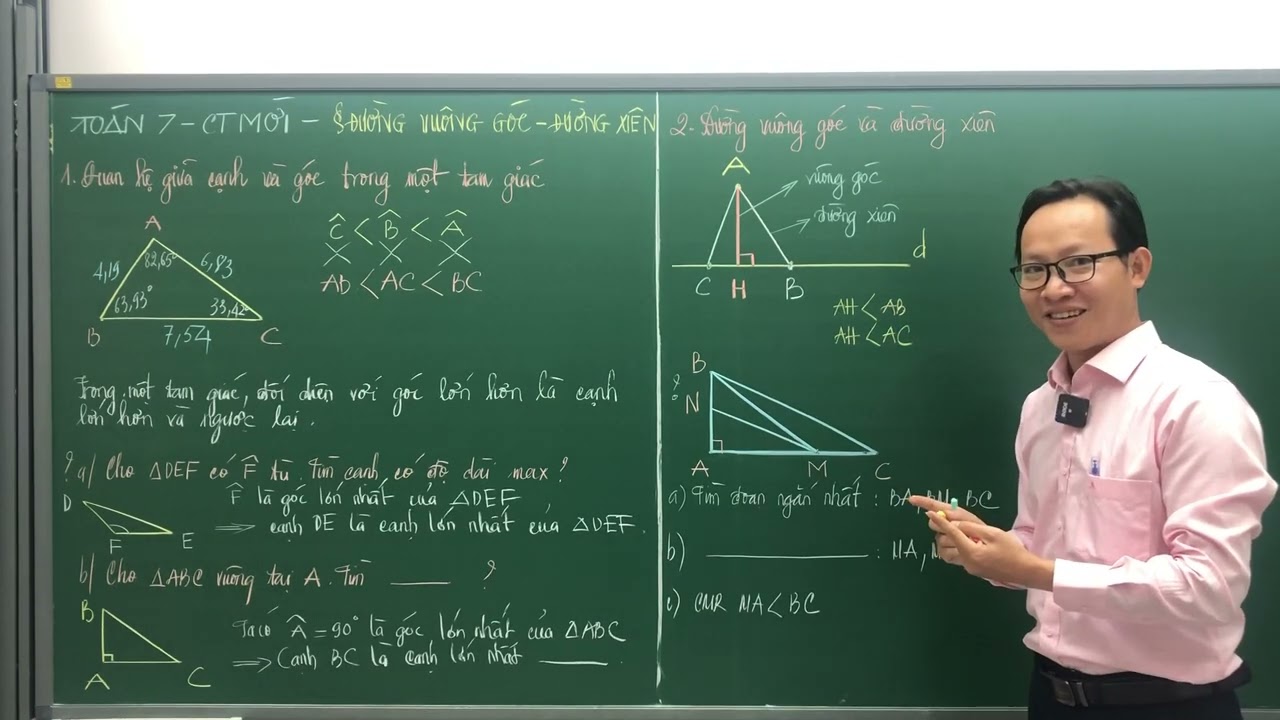 TOÁN 7 - CT MỚI - § ĐƯỜNG VUÔNG GÓC - ĐƯỜNG XIÊN
1. Quan hệ giữa cạnh và góc trong một tam giác
A
4,19 82,65° 6,83
63,93° 33,42°
B 7,54 C
Ĉ < B̂ < Â
AB < AC < BC
Trong một tam giác, đối diện với góc lớn hơn là cạnh
lớn hơn và ngược lại.
? a) Cho △DEF có F̂ tù. Tìm cạnh có độ dài max?
D
F E
F̂ là góc lớn nhất của △DEF
⇒ cạnh DE là cạnh lớn nhất của △DEF.
b) Cho △ABC vuông tại A. Tìm ____ ?
B
A C
Ta có Â = 90° là góc lớn nhất của △ABC
⇒ Cạnh BC là cạnh lớn nhất ____.
2. Đường vuông góc và đường xiên
A
vuông góc
đường xiên
d
C H B
AH < AB
AH < AC
?
B
N
A M C
a) Tìm đoạn ngắn nhất : BA, BM, BC
b) ____ : MA,
c) CMR MA < BC